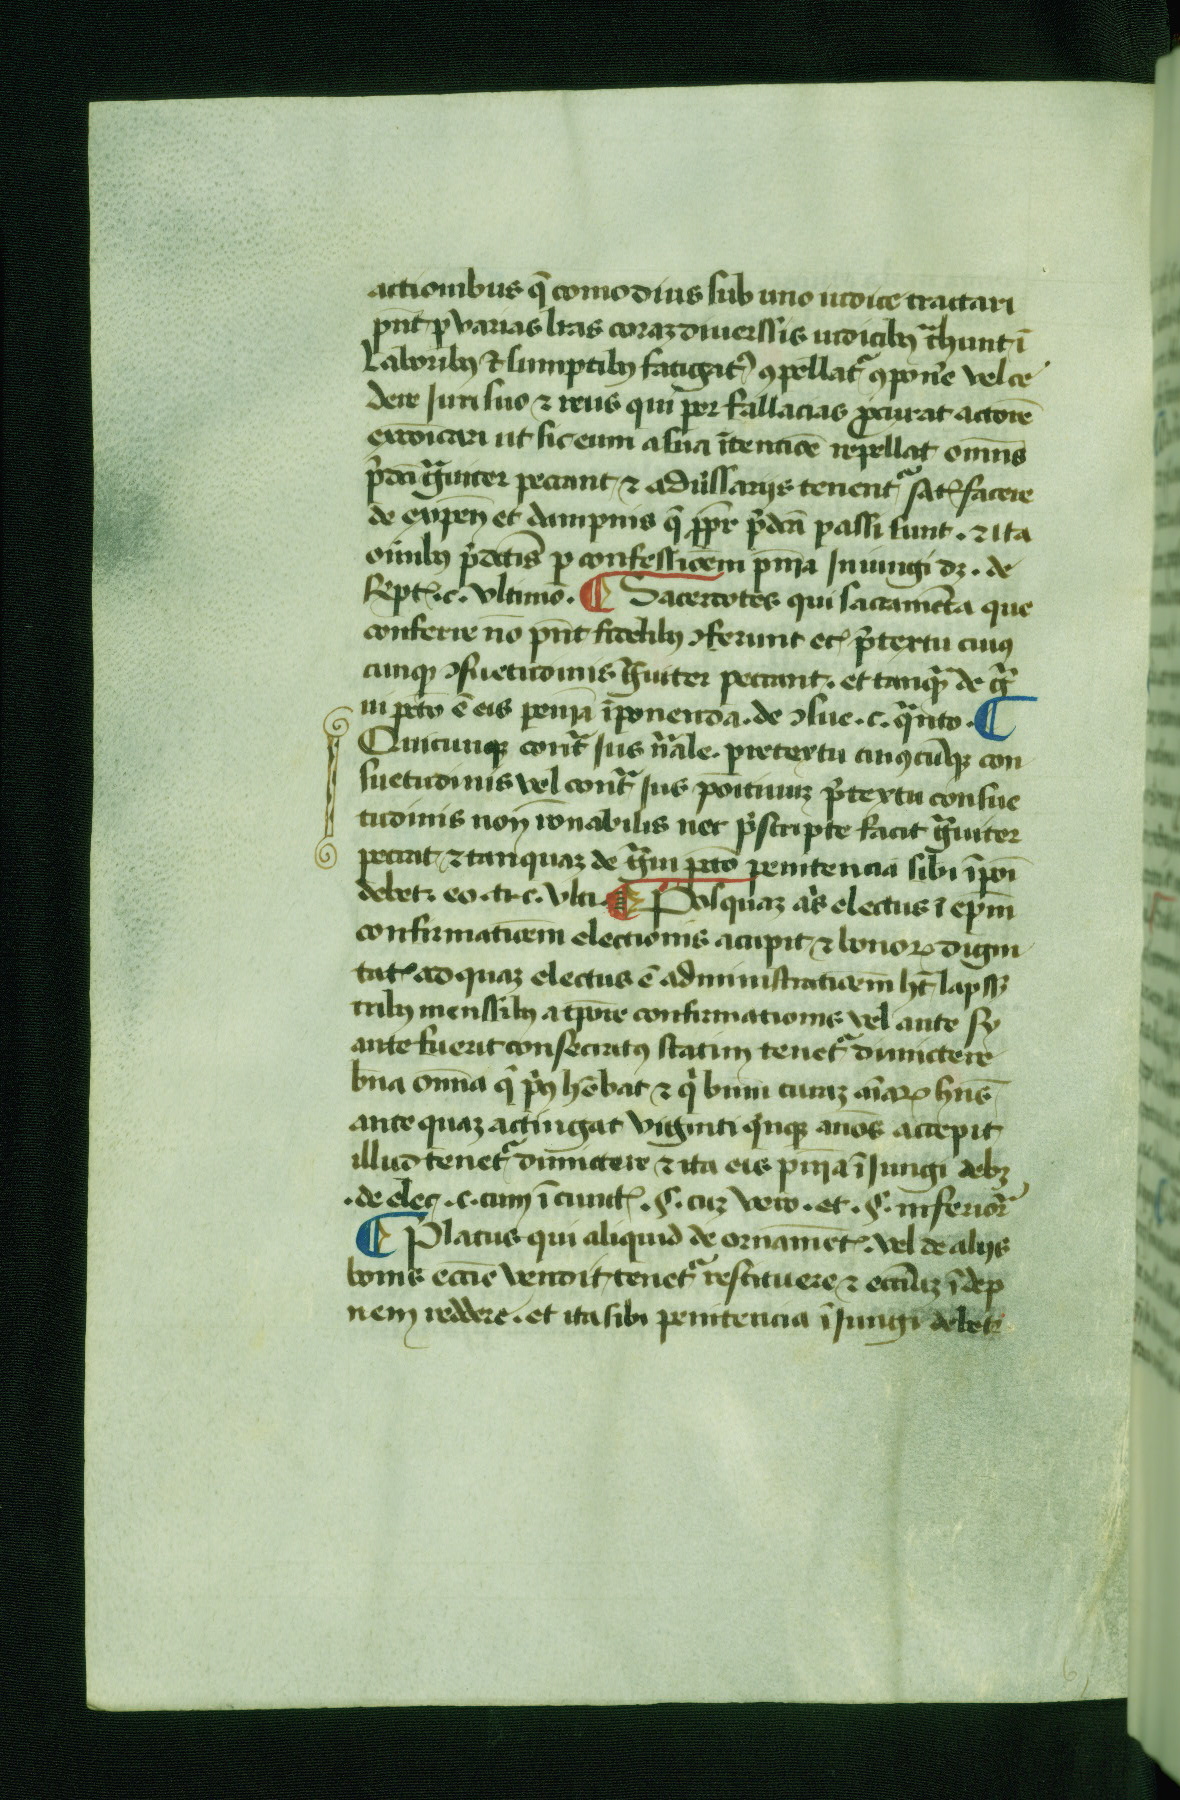 actionibus q̄ comodius sub uno iudice tractari
pn̄t p varias lr̄as coraz diverssis iudicibꝫ tͣhunt ī
Laboribꝫ & sumptibꝫ fatigatꝰ ꝯpellatͬ ꝯpon̄e vel ce
dere Juri suo ⁊ reus qui per fallacias ꝓcurat actorē
ut sic eum a sua ītencioē repellat omn̄s
p̄dc̄i gͣuiter peccant ⁊ adūssarijs tenentͬ satꝭ facere
de expen̄ et dampnis q̄ ꝓpr̄ p̄dcā passi sunt . ⁊ Ita
oīnibꝫ p̄dictis p confessioem pn̄ia Iniungi dꝫ . de
Reptꝭ . c . ultimō . ¶ Sacerdotes qui sacramēta que
conferre nō pn̄t fidelibꝫ ꝯferunt etꝭ p̄textu cuiꝰ
cunqꝫ ꝯsuetudinis gͣuiter peccant . et tanqͣ de gͣ
ui pctō ē eis penīa īponenda . de ꝯsue . c . qͣnto . ¶
Quicunqꝫ contͣ Jus nr̄ale . pretextu cuiꝰcūqꝫ con
suetudinis vel contͣ Jus poitiuuꝫ p̄textu consue
tudinis non rōnabilis nec p̄scripte facit gͣuiter
peccat ⁊ tanquaꝫ de gͣui pctō penitencia sibi īpoī
debet . eo . ti . c . ulti . ¶ Posquaꝫ aꝭs electus ī ep̄m
confirmatioēm electionis acipit ⁊ bonoꝝ digni
tatꝭ ad quaꝫ electus ē administratioem hȳ lapsꝭ
tribꝫ menssibꝫ a tp̄ore confirmationis vel ante sy
ante fuerit consecratꝰ statim tenetͬ dimictere
bn̄a omīa q̄ pꝰ hēbat ⁊ qͥ bnīn curaꝫ aīaꝝ hn̄s
ante quaꝫ actingat viginti qͥnqꝫ anōs accepit
illud tenetͬ dimictere ⁊ ita eis pn̄ia īJungi debꝫ
. de elec . c . cum ī cuntꝭ . §. cuꝫ vero . et . §. inferiorͣ
¶ Platus qui aliquid de ornamētꝭ . vel de alijs
bonis eccīe vendit tenetͬ restituere ⁊ eccīaꝫ īdep
nem reddere . et ita sibi penitencia īJungi debetͬ